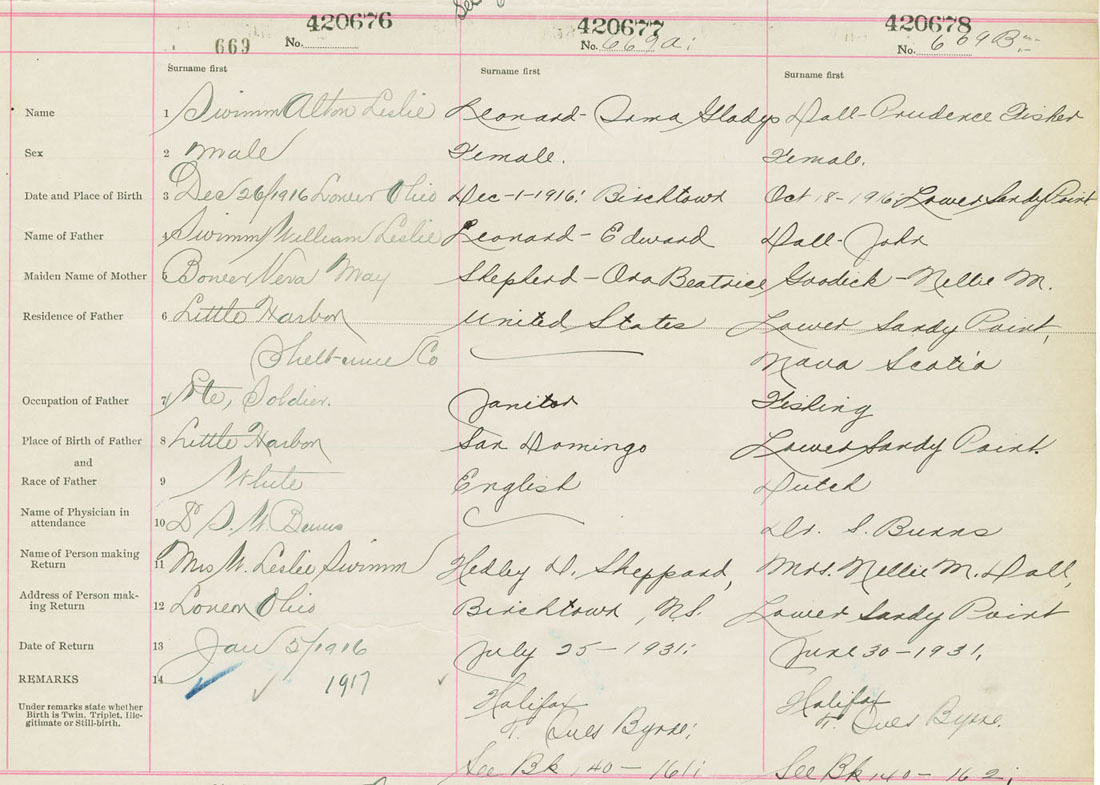 420676 420677 420678
669 No. No. 669a; No. 669B
Surname first Surname first Surname first
Name 1 Swimm Alton Leslie Leonard - Irma Gladys Dall - Prudence Fisher
Sex 2 male Female. Female.
Date and Place of Birth 3 Dec 26/1916 Lower Ohio Dec-1-1916; Birchtown Oct 18-1916; Lower Sandy Point
Name of Father 4 Swimm William Leslie Leonard - Edward Dall - John
Maiden Name of Mother 5 Bower Neva May Shepherd - Ora Beatrice Goodick - Nellie M.
Residence of Father 6 Little Harbor United States Lower Sandy Point,
Shelburne Co Nova Scotia
Occupation of Father 7 Pte, Soldier. Janitor Fishing
Place of Birth of Father 8 Little Harbor San Domingo Lower Sandy Point.
and
Race of Father 9 White English Dutch
Name of Physician in
attendance 10 Dr S. W. Burns Dr. S. Burns
Name of Person making
Return 11 Mrs W. Leslie Swimm Hedley D. Sheppard, Mrs. Nellie M. Dall,
Address of Person mak-
ing Return 12 Lower Ohio Birchtown, N.S. Lower Sandy Point
Date of Return 13 Jan 5/1916 July 25-1931; June 30-1931,
REMARKS 14 1917
Under remarks state whether
Birth is Twin, Triplet, Ille-
gitimate or Still-birth.
Halifax Halifax
Byrne; Byrne.
See Bk 140-161; See Bk 140-162;